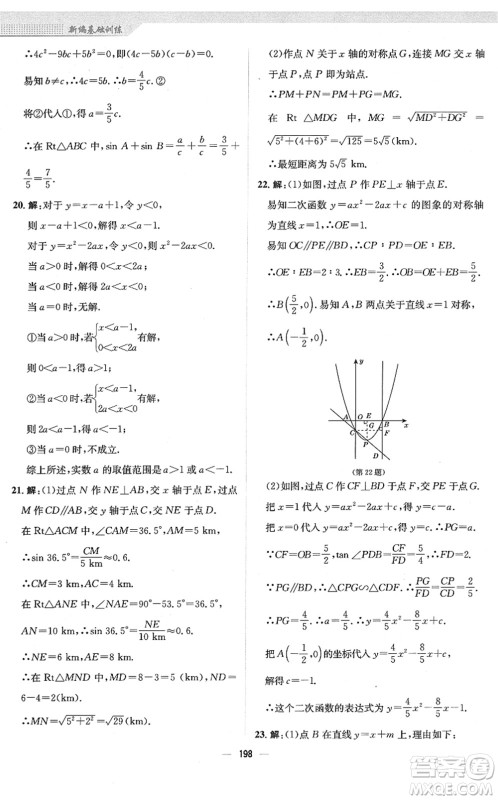 新编基础训练
∴4c²-9bc+5b²=0.
易知 b≠c, ∴b=4/5c. ②
将②代入①, 得 a=3/5c.
∴在 Rt△ABC 中, sin A+sin B=a/c+b/c=3/5+
4/5=7/5.
20. 解: 对于 y=x-a+1, 令 y<0,
则 x-a+1<0. 解得 x<a-1.
对于 y=x²-2ax, 令 y<0,
则 x²-2ax<0.
当 a>0 时, 解得 0<x<2a.
当 a<0 时, 解得 2a<x<0.
当 a=0 时, 无解.
①当 a>0 时, 若{x<a-1, 0<x<2a 有解,
则 0<a-1. 解得 a>1.
②当 a<0 时, 若{x<a-1, 2a<x<0 有解,
则 2a<a-1. 解得 a<-1.
③当 a=0 时, 不成立.
综上所述, 实数 a 的取值范围是 a>1 或 a<-1.
21. 解: (1)过点 N 作 NE⊥AB, 交 x 轴于点 E, 过点
M 作 CD∥AB, 交 NE 于点 D.
在 Rt△ACM 中, ∠CAM=36.5°, AM=5 km,
∴sin 36.5°=CM/5 km≈0.6.
∴CM=3 km, AC=4 km.
在 Rt△ANE 中, ∠NAE=90°-36.5°=53.5°,
AN=10 km, ∴sin 36.5°=NE/10 km≈0.6.
∴NE=6 km, AE=8 km.
在 Rt△MND 中, MD=8-3=5(km), ND=
6-4=2(km).
∴MN=√(5²+2²)=√29(km).
(2)作点 N 关于 x 轴的对称点 G, 连接 MG 交 x 轴
于点 P, 点 P 即为所求.
∴PM+PN=PM+PG=MG.
在 Rt △MDG 中, MG=√(MD²+DG²)=
√(5²+(4+6)²)=√125=5√5(km).
∴最短路径为 5√5 km.
22. 解: (1)如图, 过点 P 作 PE⊥x 轴于点 E.
易知二次函数 y=ax²-2ax+c 的图象的对称轴
为直线 x=1. ∴OE=1.
易知 OC∥PE∥BD, ∴OE∶EB=CP∶PD.
∴OE∶EB=2∶3. ∴EB=3/2. ∴OB=OE+EB=5/2.
∴B(5/2,0). 易知 A, B 两点关于直线 x=1 对称,
∴A(-1/2,0).
y
A O E B x
C G F
P D
(第 22 题)
(2)如图, 过点 C 作 CF⊥BD 于点 F, 交 PE 于点 G.
把 x=1 代入 y=ax²-2ax+c, 得 y=c-a.
把 x=0 代入 y=ax²-2ax+c, 得 y=c.
∴C(0,c), P(1,c-a). ∴PG=a.
∵CF=OB=5/2, tan ∠PDB=CF/FD=5/4, ∴FD=2.
∵PG∥BD, ∴△CPG∽△CDF. ∴PG/FD=CP/CD=2/5.
∴PG=4/5. ∴a=4/5. ∴y=4/5x²-8/5x+c.
把 A 的坐标代入 y=4/5x²-8/5x+c,
解得 c=-1.
∴这个二次函数的表达式为 y=4/5x²-8/5x-1.
23. 解: (1)点 B 在直线 y=x+m 上, 理由如下:
198
答案圈
MXQE.COM